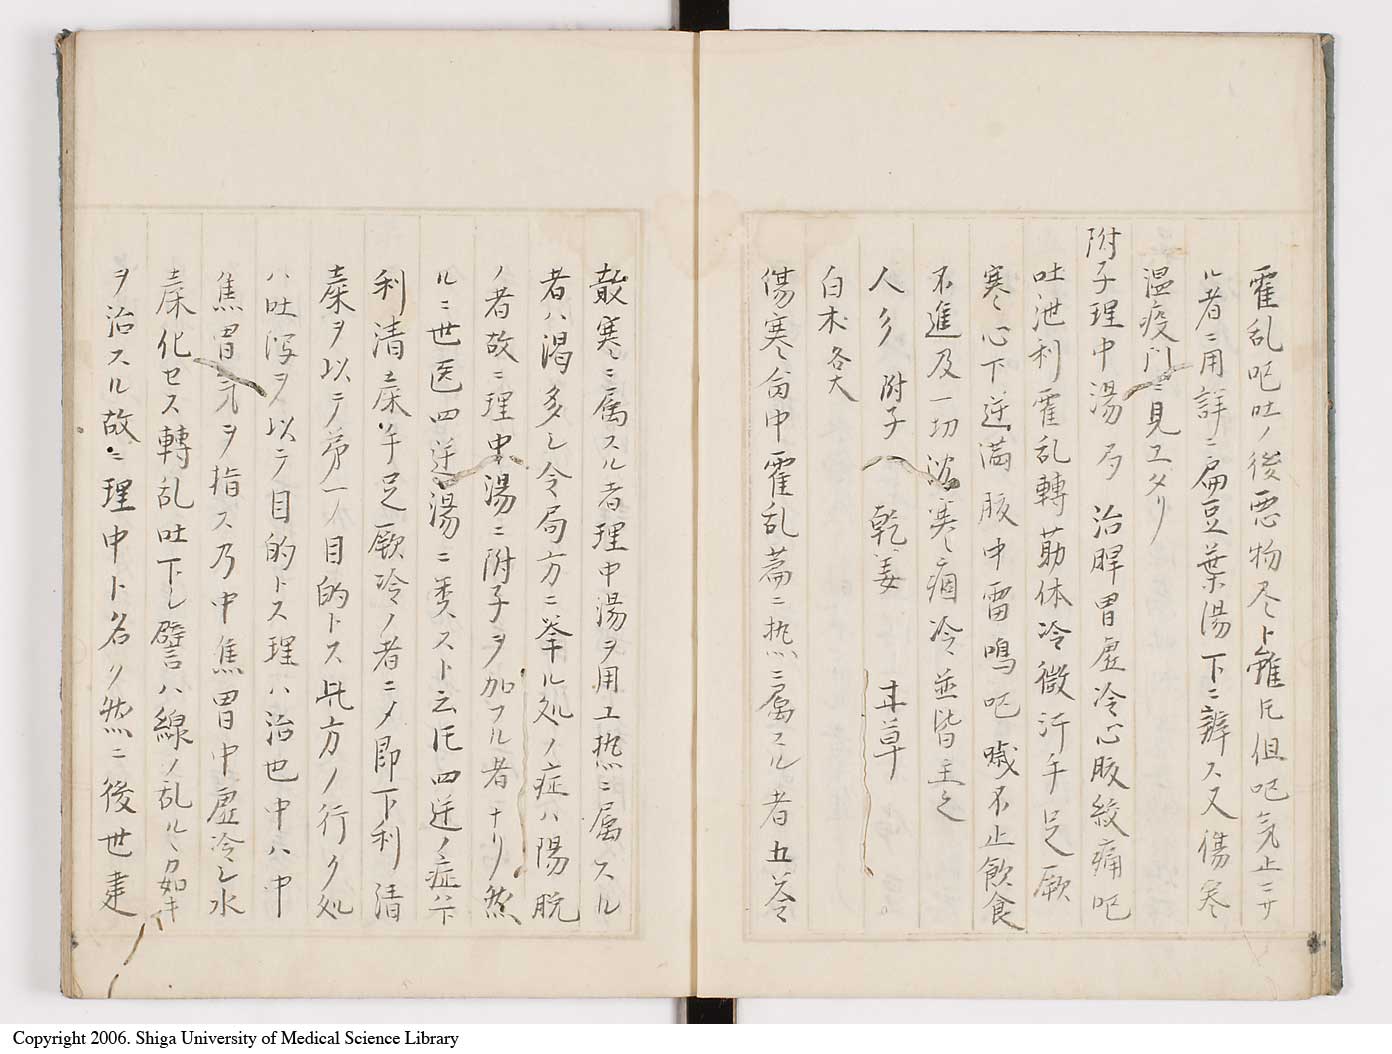 霍乱吐吐ノ後悪物尽ト雖𪜈但吐気止ニサ
ル者ニ用詳ニ扁豆葉湯下ニ辨ス又傷寒
温疫門ニ見エタリ
附子理中湯 局 治脾胃虚冷心腹絞痛呕
吐泄利霍乱轉筋体冷微汗手足厥
寒心下逆満腹中雷鳴呕噦不止飲食
不進及一切沉寒痼冷並皆主之
人参 附子 乾姜 甘草
白朮 各大
傷寒論中霍乱篇ニ热ニ属スル者五苓
散寒ニ属スル者理中湯ヲ用エ热ニ属スル
者ハ渇多シ今局方ニ挙ル処ノ症ハ陽脱
ノ者故ニ理中湯ニ附子ヲ加フル者ナリ然
ルニ世医四逆湯ニ類スト云𪜈四逆ノ症ハ下
利清穀手足厥冷ノ者ニメ即下利清
穀ヲ以テ第一ノ目的トス此方ノ行ク処
ハ吐瀉ヲ以テ目的トス理ハ治也中ハ中
焦胃気ヲ指ス乃中焦胃中虚冷シ水
穀化セス轉乱吐下シ譬ハ線ノ乱ルヽカ如キ
ヲ治スル故ニ理中ト名ク然ニ後世建
Copyright 2006. Shiga University of Medical Science Library